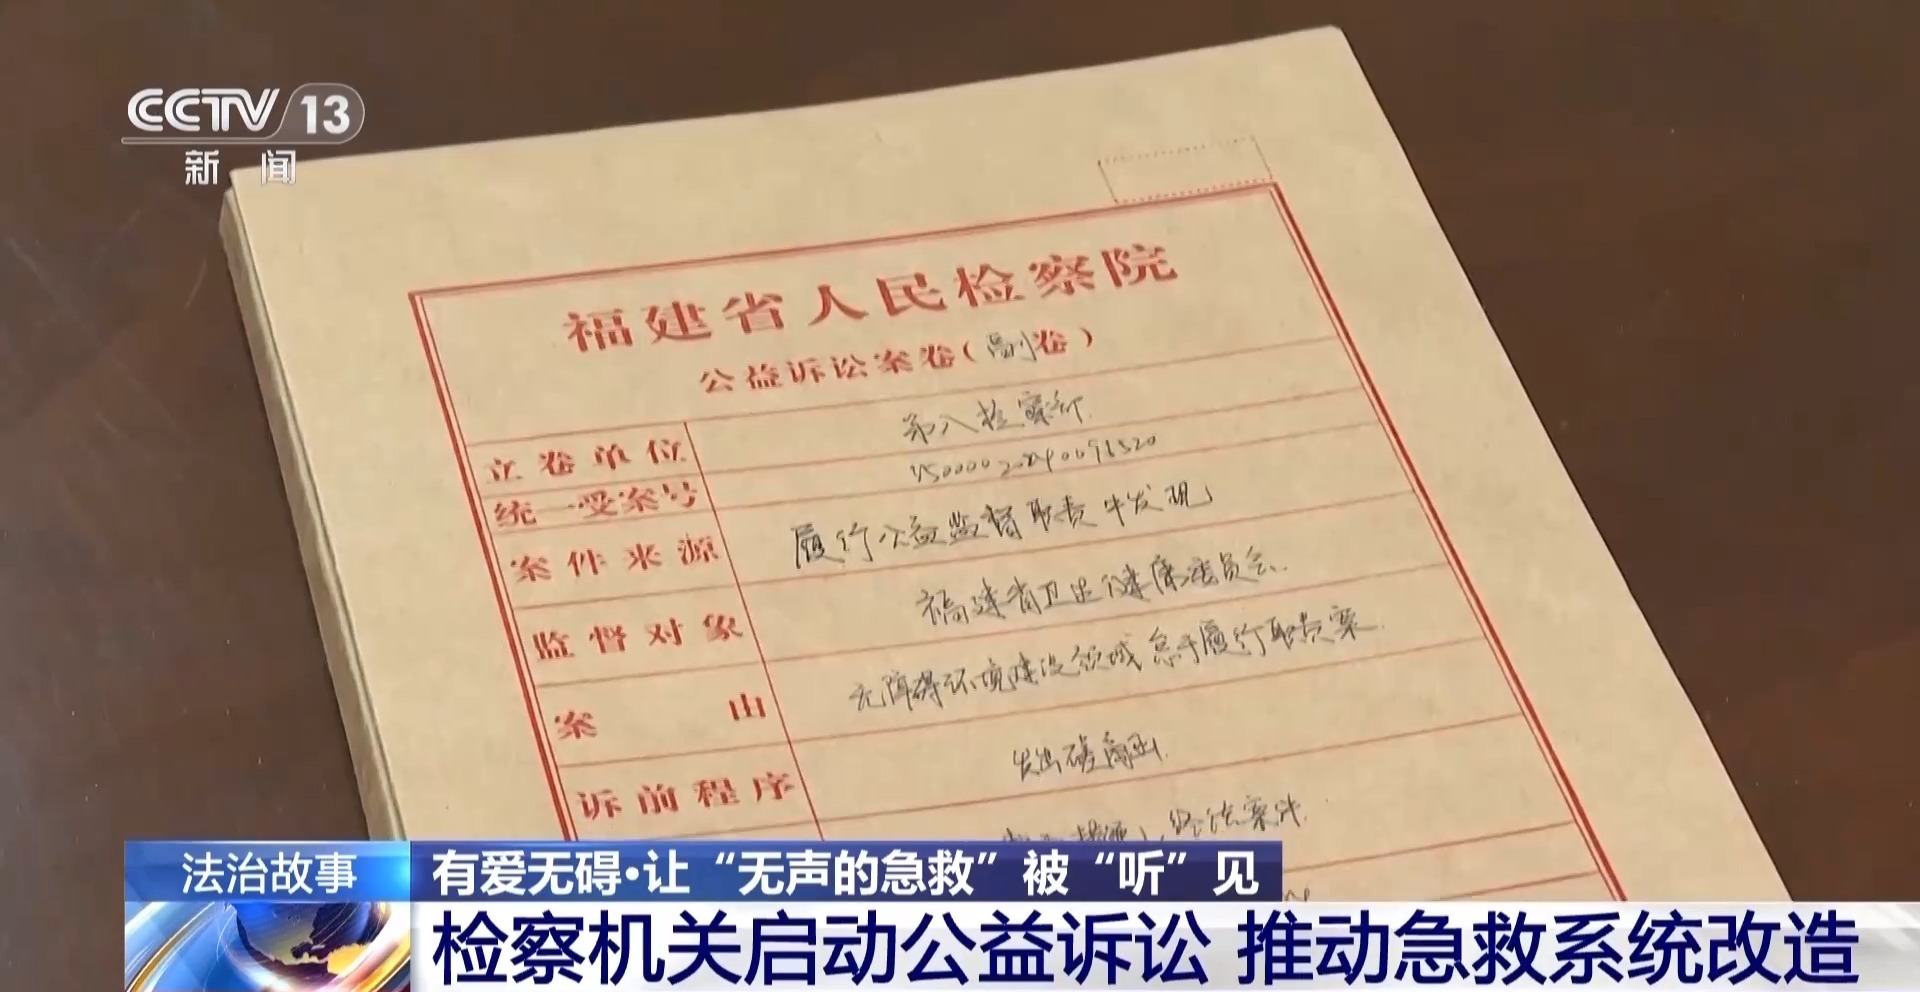 CCTV 13
新闻
福建省人民检察院
公益诉讼案卷（副卷）
立卷单位 第八检察部
统一受案号
案件来源 履行公益监督职责中发现
监督对象 福建省卫生健康委员会
案由 无障碍环境建设领域怠于履行职责案
诉前程序 发出磋商函
法治故事
有爱无碍·让“无声的急救”被“听”见
检察机关启动公益诉讼 推动急救系统改造